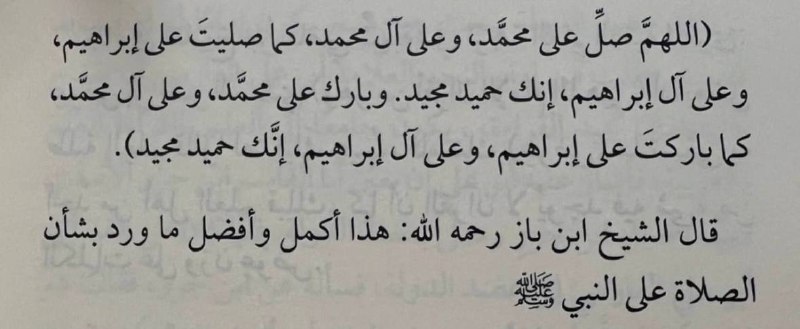 (اللهمَّ صلِّ على محمَّد، وعلى آل محمد، كما صليتَ على إبراهيم،
وعلى آل إبراهيم، إنك حميد مجيد. وبارك على محمَّد، وعلى آل محمَّد،
كما باركتَ على إبراهيم، وعلى آل إبراهيم، إنَّك حميد مجيد).
قال الشيخ ابن باز رحمه الله: هذا أكمل وأفضل ما ورد بشأن
الصلاة على النبي ﷺ